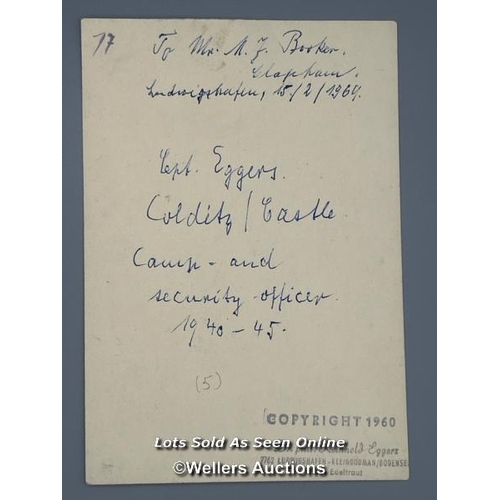 17
To Mr. M. J. Booker.
Clapham.
Ludwigshafen, 15/2/1969.
Cpt. Eggers.
Colditz/Castle
Camp - and
security officer
1940-45.
(5)
COPYRIGHT 1960
Reinhold Eggers
LUDWIGSHAFEN-
Lots Sold As Seen Online
©Wellers Auctions